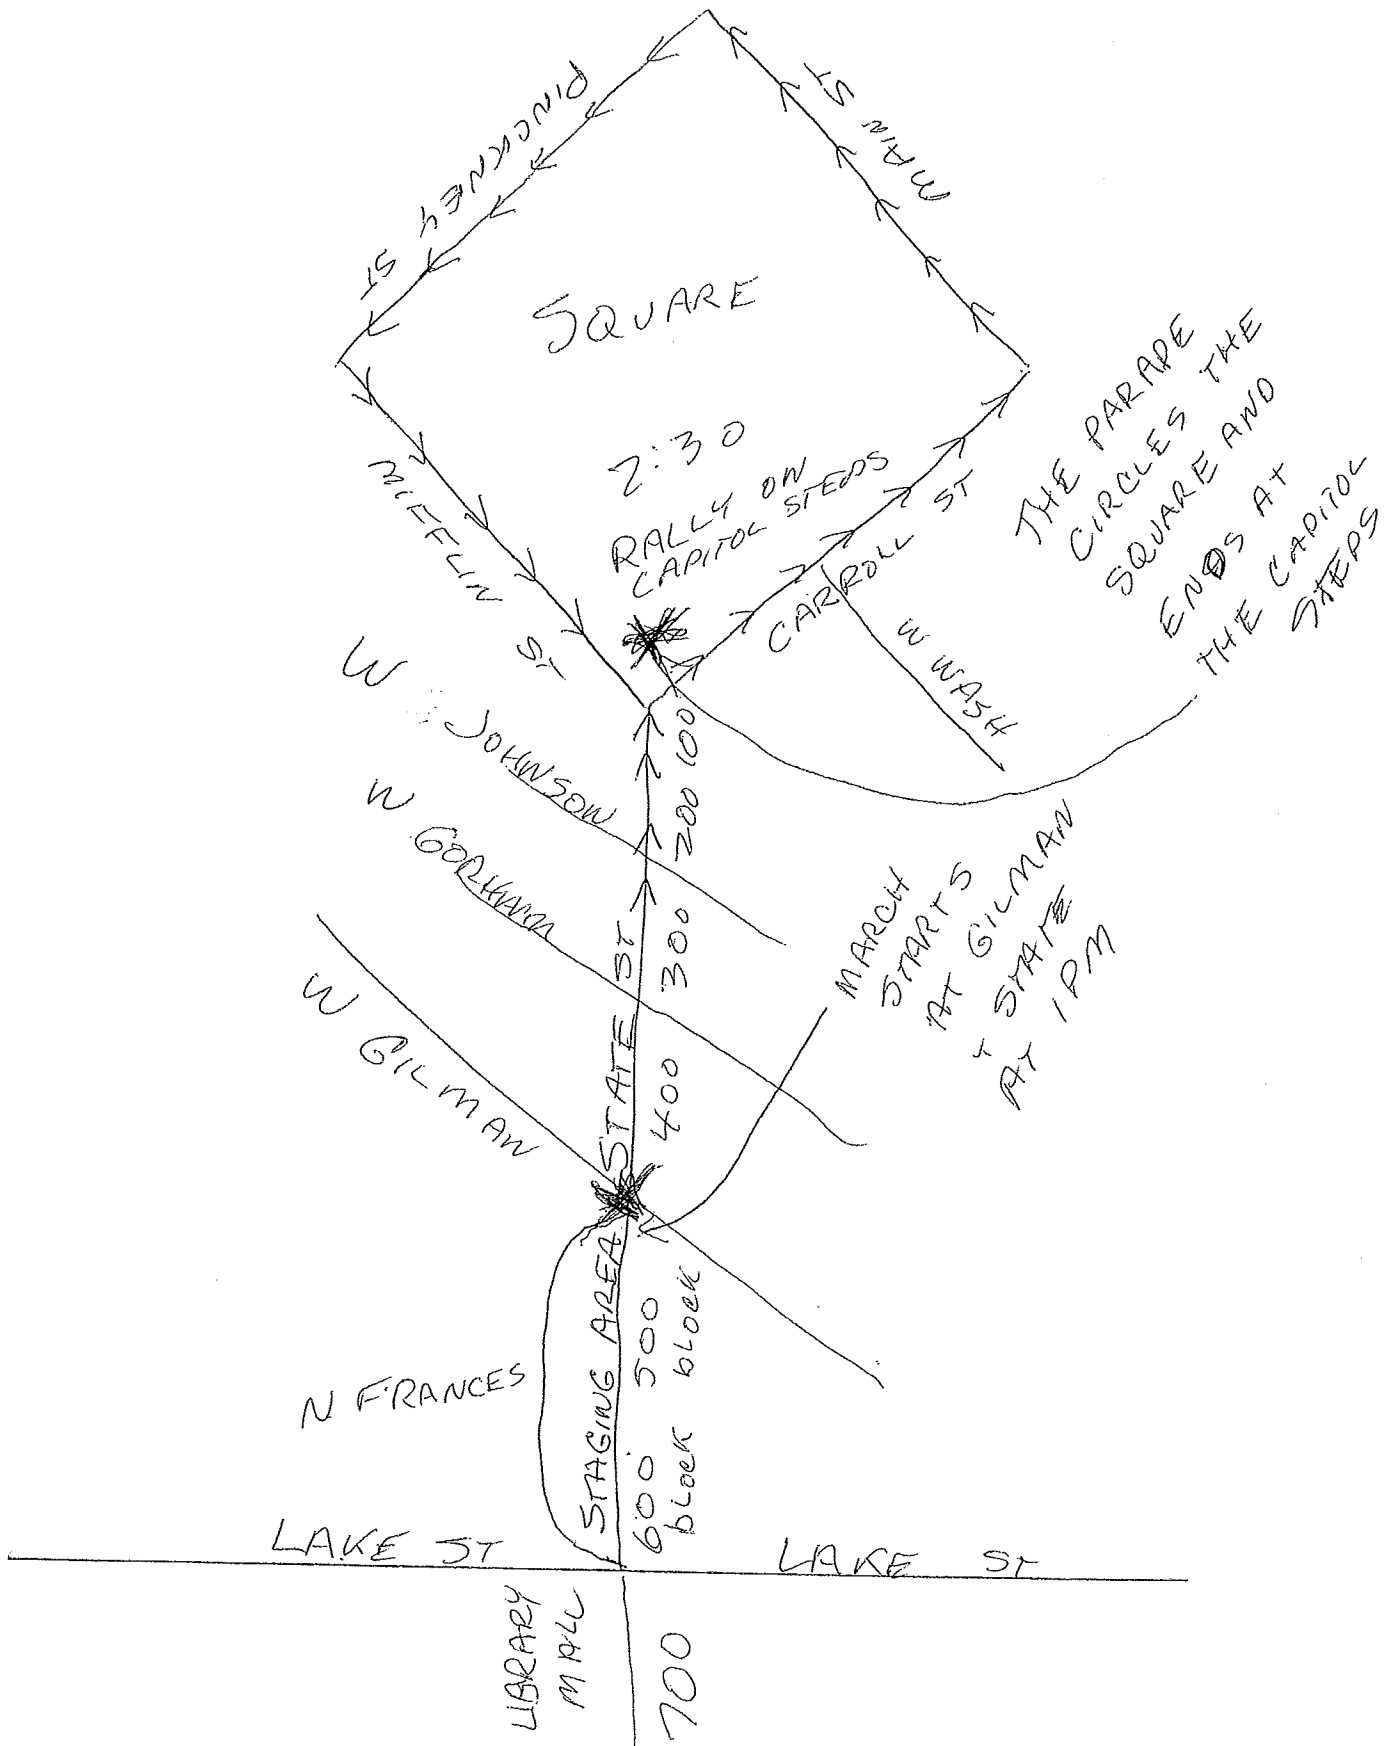 PINCKNEY ST
MAIN ST
SQUARE
2:30
RALLY ON
CAPITOL STEPS
MIFFLIN ST
CARROLL ST
W WASH
THE PARADE
CIRCLES THE
SQUARE AND
ENDS AT
THE CAPITOL
STEPS
W JOHNSON
W GORHAM
W GILMAN
STATE ST
100
200
300
400
MARCH
STARTS
AT GILMAN
+ STATE
AT 1PM
STAGING AREA
500
block
600
block
N FRANCES
LAKE ST
LAKE ST
LIBRARY
MALL
700